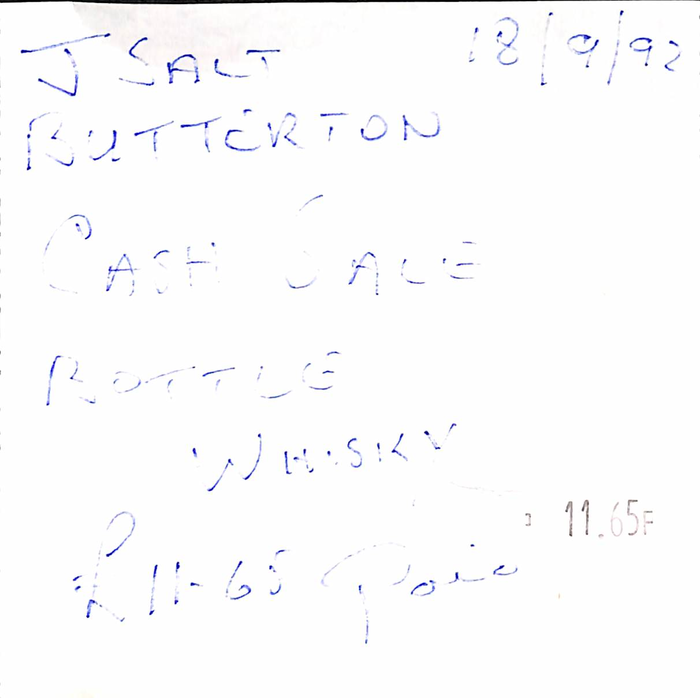 J SALT 18/9/92
BUTTERTON
CASH SALE
BOTTLE
WHISKY
11.65F
£11-65 paid